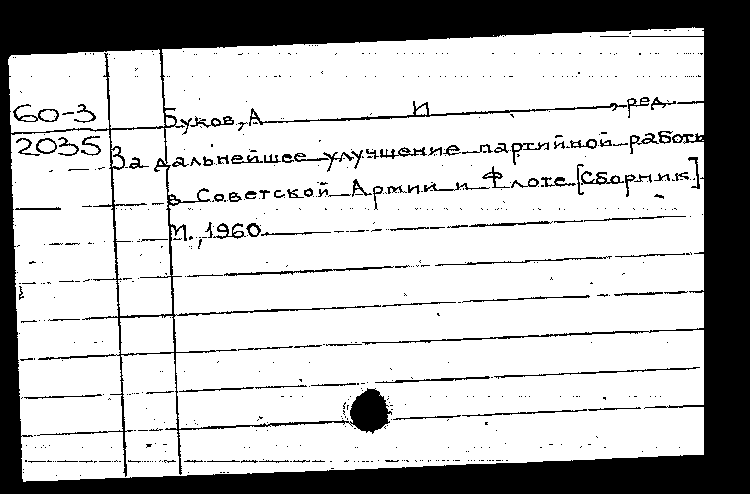 60-3 Буков, А И , ред.
2035 За дальнейшее улучшение партийной работы
в Советской Армии и Флоте [Сборник]
М., 1960.